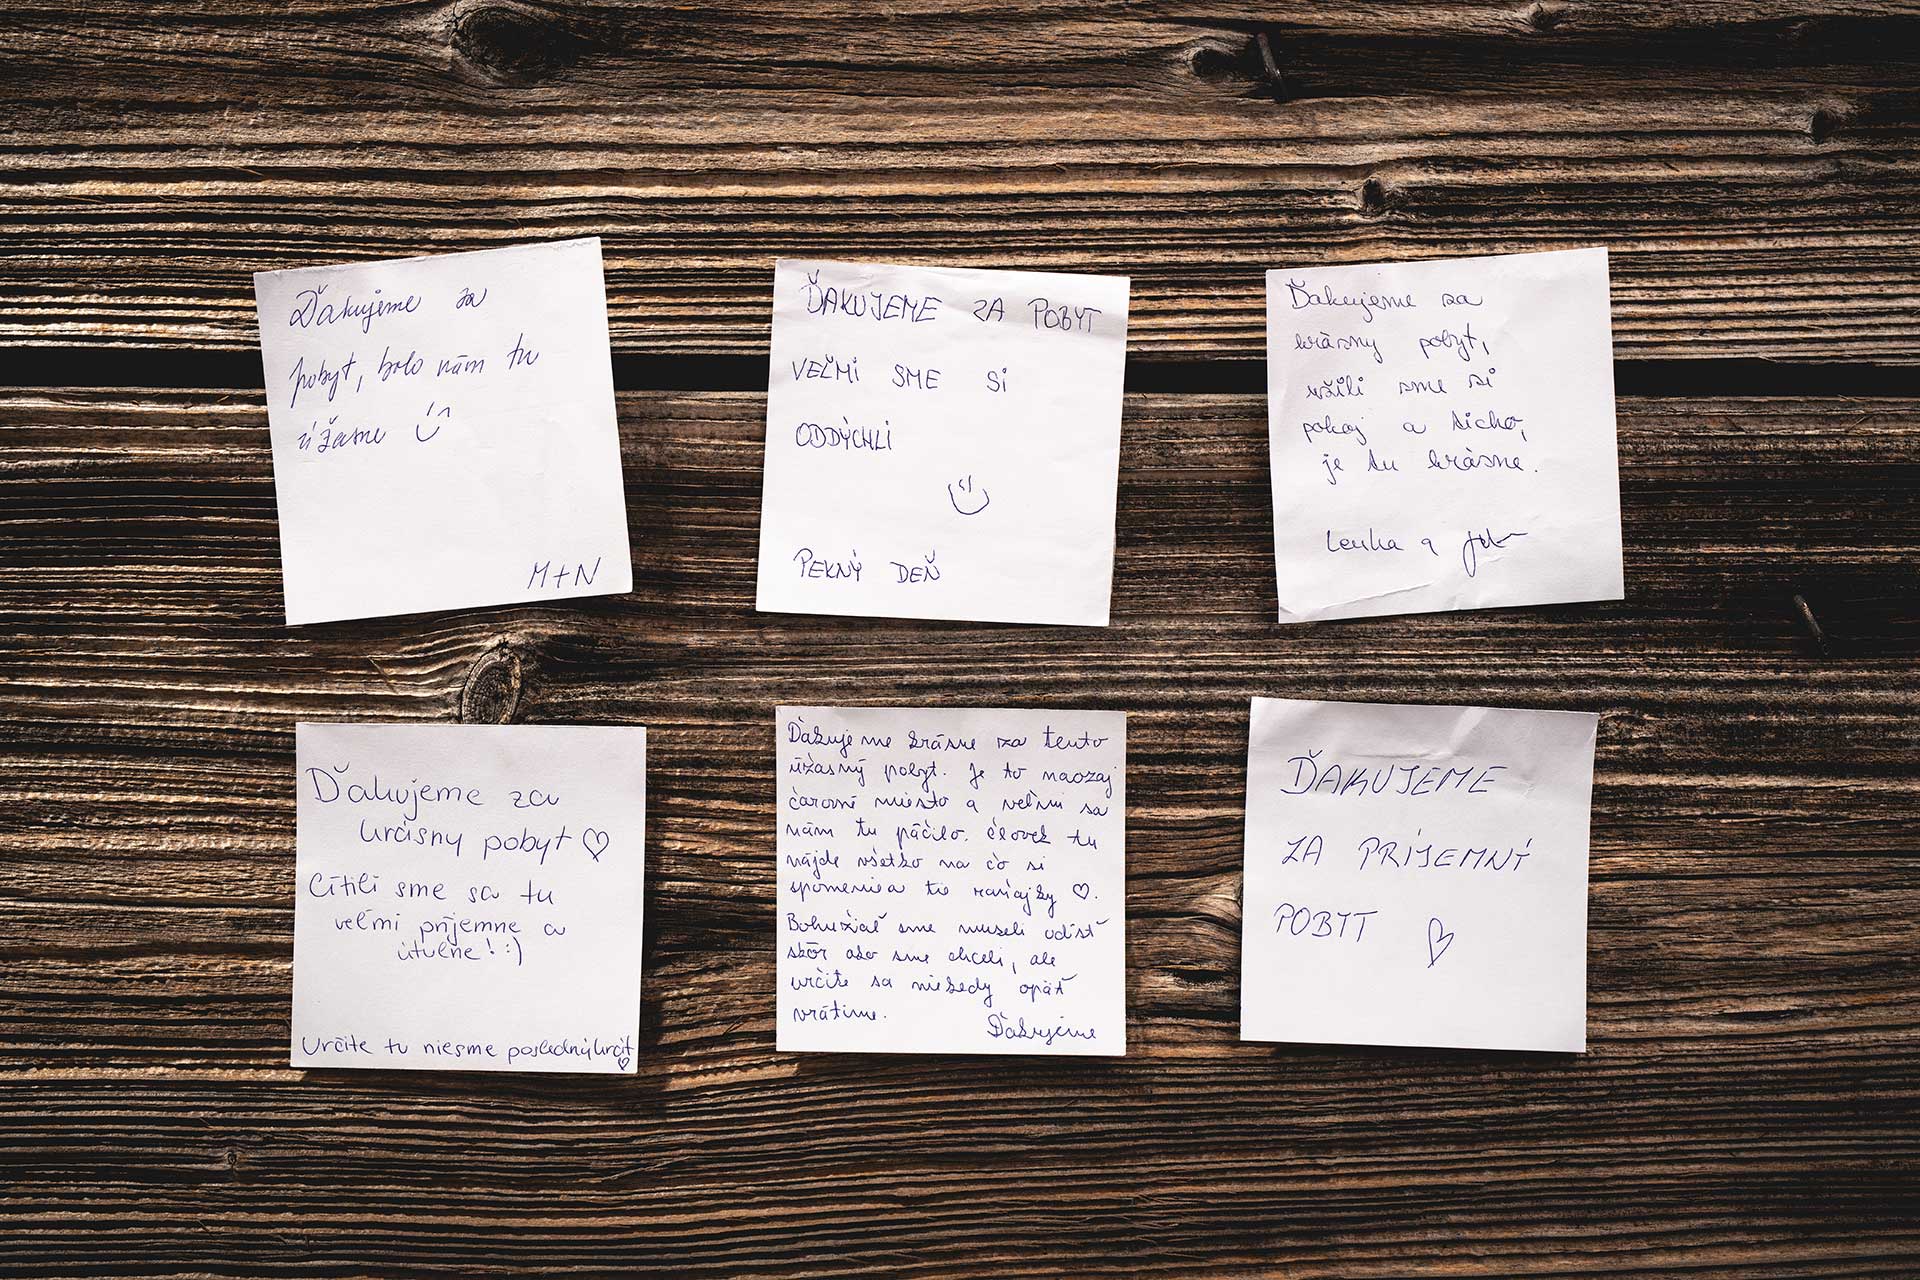 Ďakujeme za
pobyt, bolo nám tu
úžasne
M+N
ĎAKUJEME ZA POBYT
VEĽMI SME SI
ODDÝCHLI
PEKNÝ DEŇ
Ďakujeme za
krásny pobyt,
užili sme si
pokoj a ticho,
je tu krásne.
Lenka a
Ďakujeme za
krásny pobyt ♡
Cítili sme sa tu
veľmi príjemne a
útulne! :)
Určite tu niesme poslednýkrát
♡
Ďakujeme krásne za tento
úžasný pobyt. Je to naozaj
čarovné miesto a veľmi sa
nám tu páčilo. Človek tu
nájde všetko na čo si
spomenie a tie raňajky ♡.
Bohužiaľ sme museli odísť
skôr ako sme chceli, ale
určite sa niekedy opäť
vrátime.
Ďakujeme
ĎAKUJEME
ZA PRÍJEMNÝ
POBYT ♡